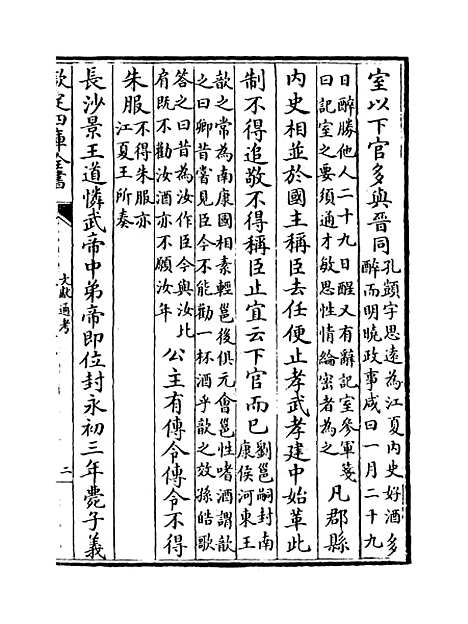 室以下官多與晉同孔顗字思遠為江夏内史好酒多
醉而明曉政事咸曰一月二十九
日醉勝他人二十九日醒又有辭記室參軍箋
曰記室之要須通才敏思性情綸密者為之凡郡縣
内史相並於國主稱臣去任便止孝武孝建中始革此
制不得追敬不得稱臣止宜云下官而已劉邕嗣封南
康侯河東王
歆之常為南康國相素輕邕後俱元會邕性嗜酒謂歆
之曰卿昔嘗見臣今不能勸一杯酒乎歆之效孫皓歌
答之曰昔為汝作臣今與汝比
肩既不勸汝酒亦不願汝年公主有傳令傳令不得
朱服不得朱服亦
江夏王所奏
長沙景王道憐武帝中弟帝即位封永初三年薨子義
欽定四庫全書
文獻通考
二